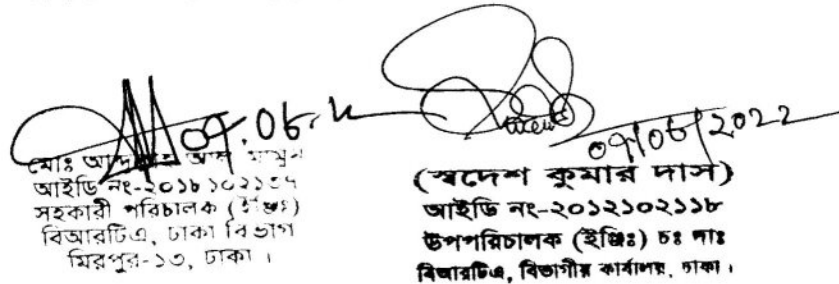 ০৭.০৬.২২
মোঃ আব্দুল্লাহ আল মামুন
আইডি নং-২০১৮১০২১৩৭
সহকারী পরিচালক (ইঞ্জিঃ)
বিআরটিএ, ঢাকা বিভাগ
মিরপুর-১৩, ঢাকা ।
০৭/০৬/2022
(স্বদেশ কুমার দাস)
আইডি নং-২০১২১০২১১৮
উপপরিচালক (ইঞ্জিঃ) চঃ দাঃ
বিআরটিএ, বিভাগীয় কার্যালয়, ঢাকা ।